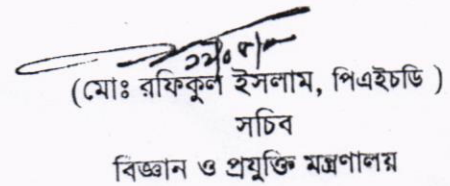 (মোঃ রফিকুল ইসলাম, পিএইচডি )
সচিব
বিজ্ঞান ও প্রযুক্তি মন্ত্রণালয়